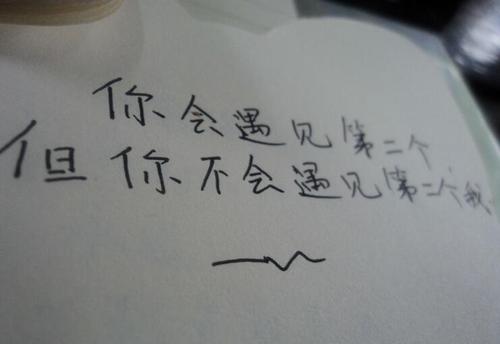 你会遇见第二个
但你不会遇见第二个我